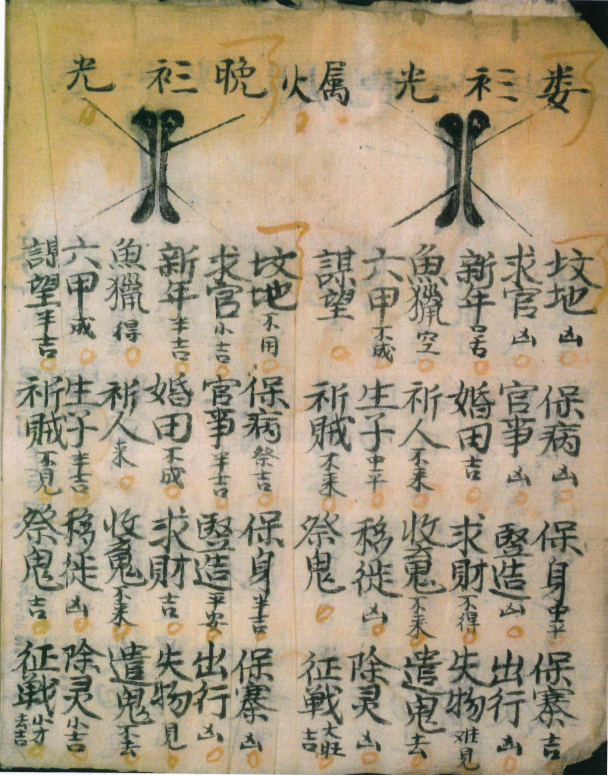 娄衫光
属火
晚衫光
坟地凶 保病凶 保身中平 保寨吉
求官凶 官事凶 竪造凶 出行凶
新年口舌 婚田吉 求財不得 失物难見
魚獵空 祈人不来 收魂不来 遣鬼去
六甲不成 生子中平 移徙凶 除灵凶
謀望 祈賊不来 祭鬼 征戦大旺吉
坟地不用 保病祭吉 保身半吉 保寨凶
求官小吉 官事半吉 竪造平安 出行凶
新年半吉 婚田不成 求財吉 失物見
魚獵得 祈人来 收魂不来 遣鬼不去
六甲成 生子半吉 移徙凶 除灵小吉
謀望半吉 祈賊不見 祭鬼吉 征戦小才吉